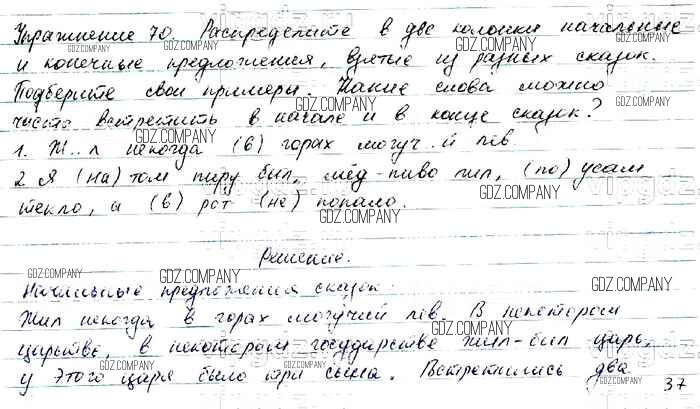 Упражнение 70. Распределите в две колонки начальные
и конечные предложения, взятые из разных сказок.
Подберите свои примеры. Какие слова можно
часто встретить в начале и в конце сказок?
1. Ж..л некогда (в) горах могуч..й лев.
2. Я (на) том пиру был, мёд-пиво пил, (по) усам
текло, а (в) рот (не) попало.
Решение.
Начальные предложения сказок:
Жил некогда в горах могучий лев. В некотором
царстве, в некотором государстве жил-был царь,
у этого царя было три сына. Встретились два
37